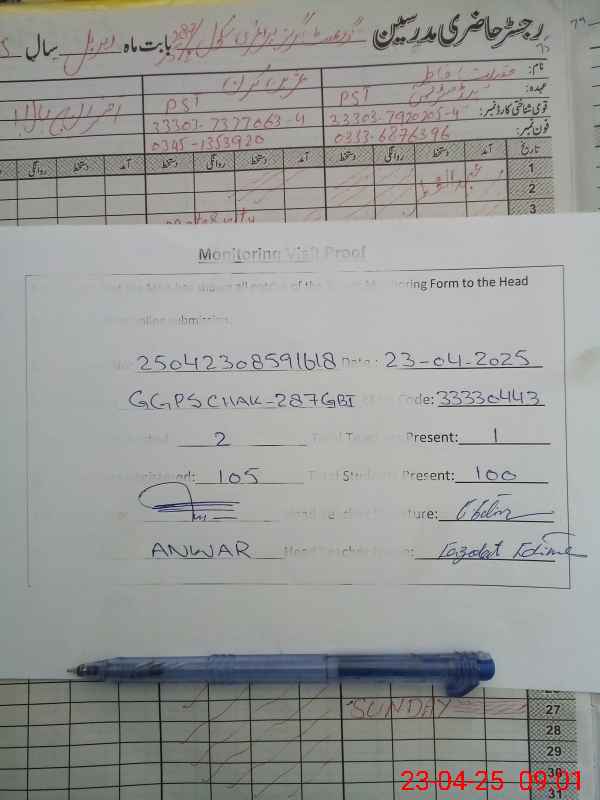 رجسٹر حاضری مدرسین گورنمنٹ گرلز پرائمری سکول 287 بابت ماہ اپریل سال
نام:
عہدہ: PST PST
قومی شناختی کارڈ نمبر: 33303-7377063-4
فون نمبر: 0333-6876396 0345-1353920
تاریخ آمد دستخط روانگی دستخط آمد دستخط روانگی دستخط آمد دستخط روانگی
1
2
3
Monitoring Visit Proof
has shown all entries of the Monitoring Form to the Head
online submission.
25042308591618 Date: 23-04-2025
GGPS CHAK-287GBI Code: 33330443
2 Total Teachers Present: 1
registered: 105 Total Students Present: 100
Head Teacher Signature:
ANWAR Head Teacher Name:
27 SUNDAY
28
29
30
31
23-04-25 09:01